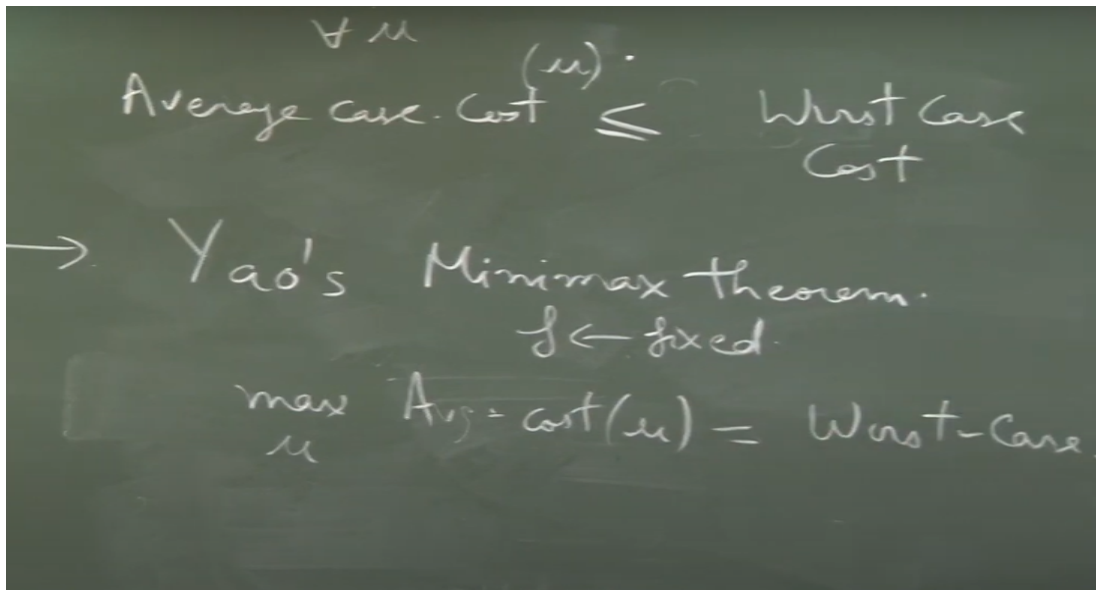 ∀ μ
Average case. Cost (μ). ≤ Worst Case
Cost
→ Yao's Minimax theorem.
f ← fixed.
max Avg-cost(μ) = Worst-Case.
μ